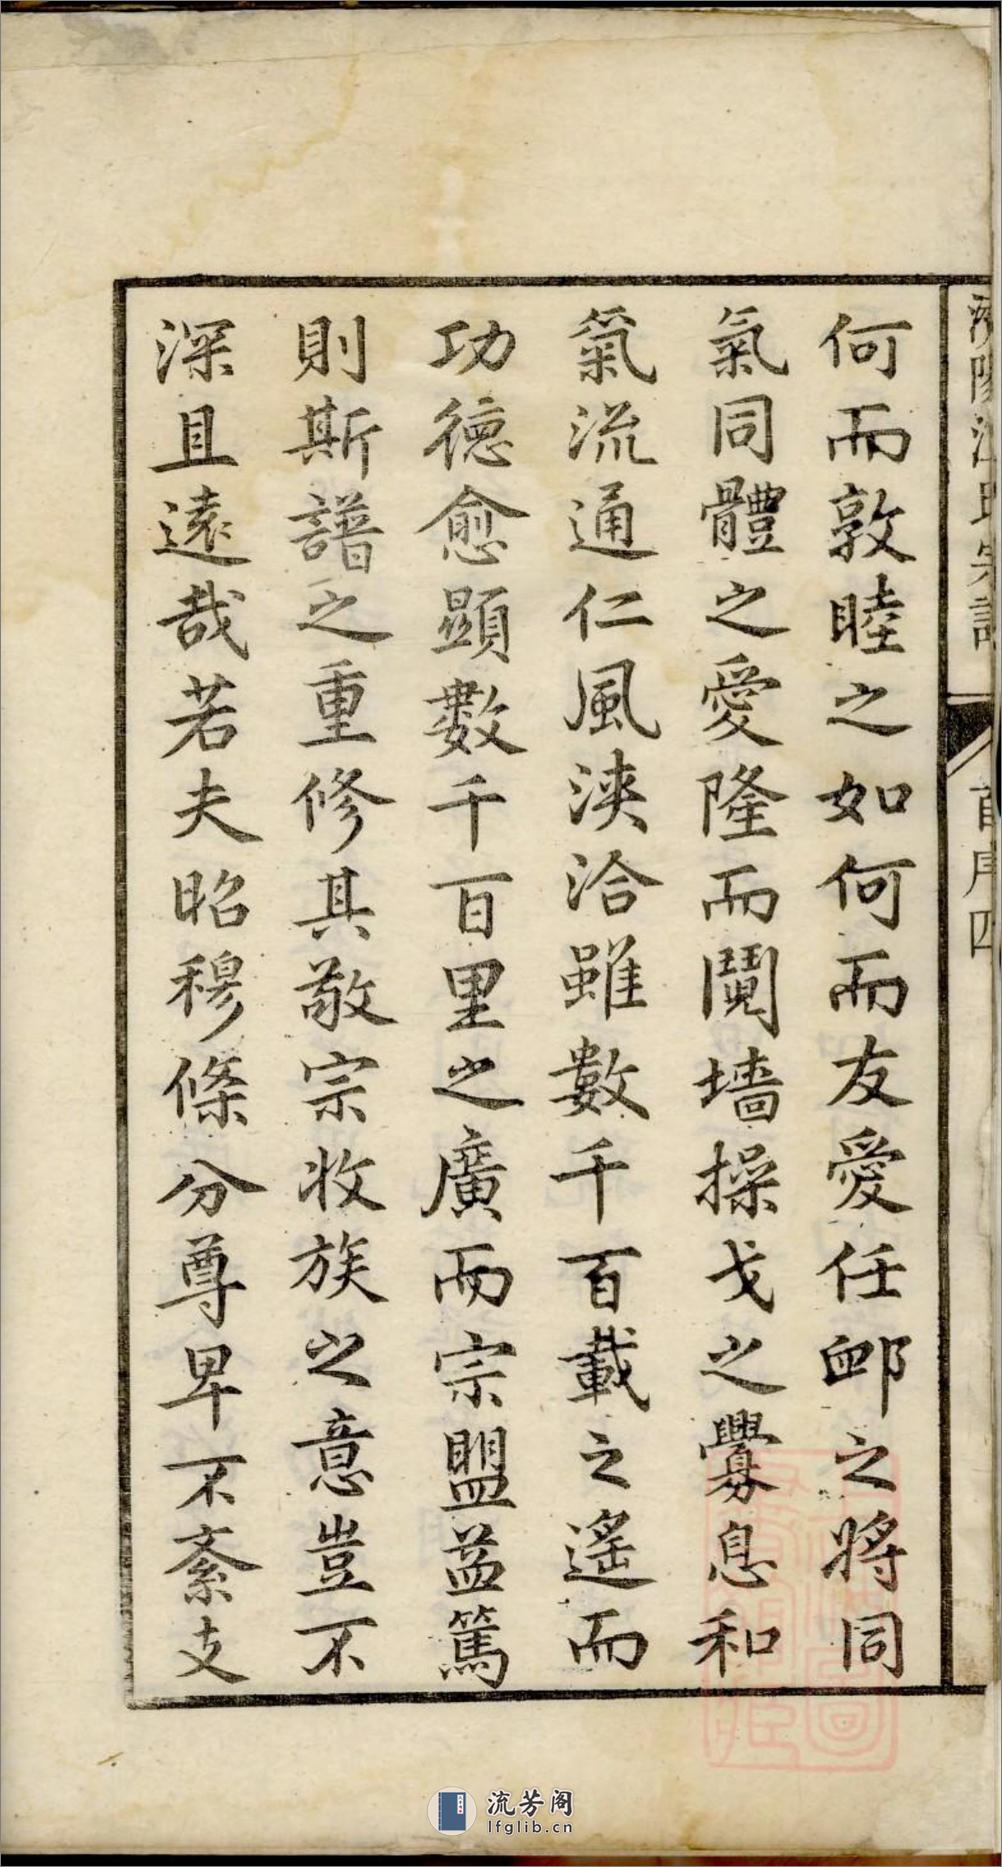 何而敦睦之如何而友愛任卹之將同
氣同體之愛隆而鬩墻操戈之釁息和
氣流通仁風浹洽雖數千百載之遙而
功德愈顯數千百里之廣而宗盟益篤
則斯譜之重修其敬宗收族之意豈不
深且遠哉若夫昭穆條分尊卑不紊支
陽江氏宗譜
首序四
流芳阁
lfglib.cn